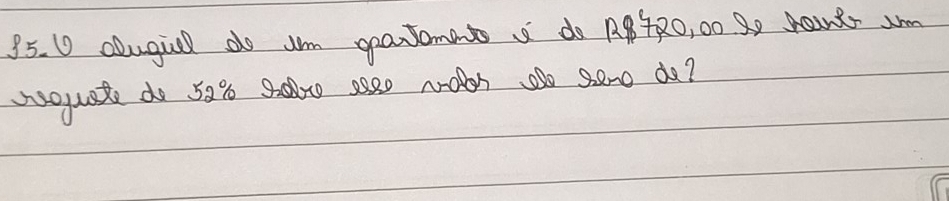 15. O aluguel de um apartamento é de R$ 720,00 Se houver um
reajuste de 52% sobre esse valor ele será de?